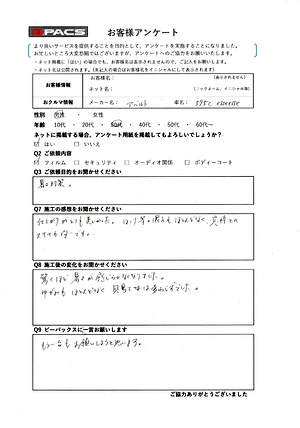 PACS お客様アンケート
より良いサービスを提供することを目的として、アンケートを実施することになりました。
お忙しいところ大変恐縮ではございますが、アンケートへのご協力をお願いいたします。
・ネット掲載に（はい）の場合でも、お客様名は表示されませんので、ご記入をお願いします。
・ネット名は公開されます。（未記入の場合はお客様名をイニシャルにして表示されます）
お客様情報
お客様名：
（表示されません）
ネット名：
（ニックネーム、イニシャル等）
おクルマ情報
メーカー名： アバルト
車名： 595c esseesse
性別 男性 ・ 女性
年齢 10代 ・ 20代 ・ 30代 ・ 40代 ・ 50代 ・ 60代～
ネットに掲載する場合、アンケート用紙を掲載してもよろしいでしょうか？
はい □ いいえ
Q2 ご依頼内容
フィルム □ セキュリティ □ オーディオ関係 □ ボディーコート
Q3 ご依頼目的をお聞かせください
暑さ対策。
Q7 施工の感想をお聞かせください
仕上がりがとても
ほとんどなく
Q8 施工後の変化をお聞かせください
驚くほど暑さが感じられなくなりました。
ほとんどなく
Q9 ピーパックスに一言お願いします
もう一台もお願いしようと思います。
ご協力ありがとうございました